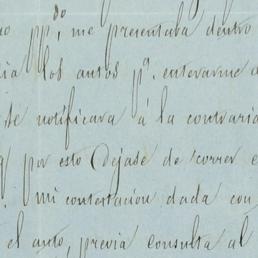 no pp.do, me presentaba dentro
dia los autos p.a enterarme
se notificara á la contraria
q por esto dejase de correr e
mi contestación dada con
el auto, previa consulta al